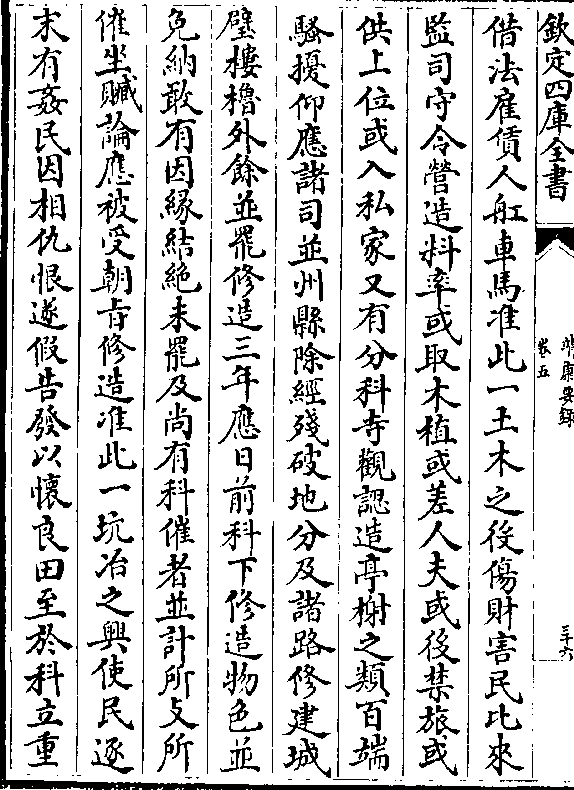 欽定四庫全書
靖康要録
卷五
三十六
借法雇賃人舡車馬准此一土木之役傷財害民比來
監司守令營造料率或取木植或差人夫或役禁旅或
供上位或入私家又有分科寺觀認造亭榭之類百端
騷擾仰應諸司並州縣除經殘破地分及諸路修建城
壁樓櫓外餘並罷修造三年應日前科下修造物色並
免納敢有因緣結絶未罷及尚有科催者並計所攴所
催坐贓論應被受朝㫖修造准此一坑冶之興使民逐
末有姦民因相仇恨遂假告發以懷良田至於科立重